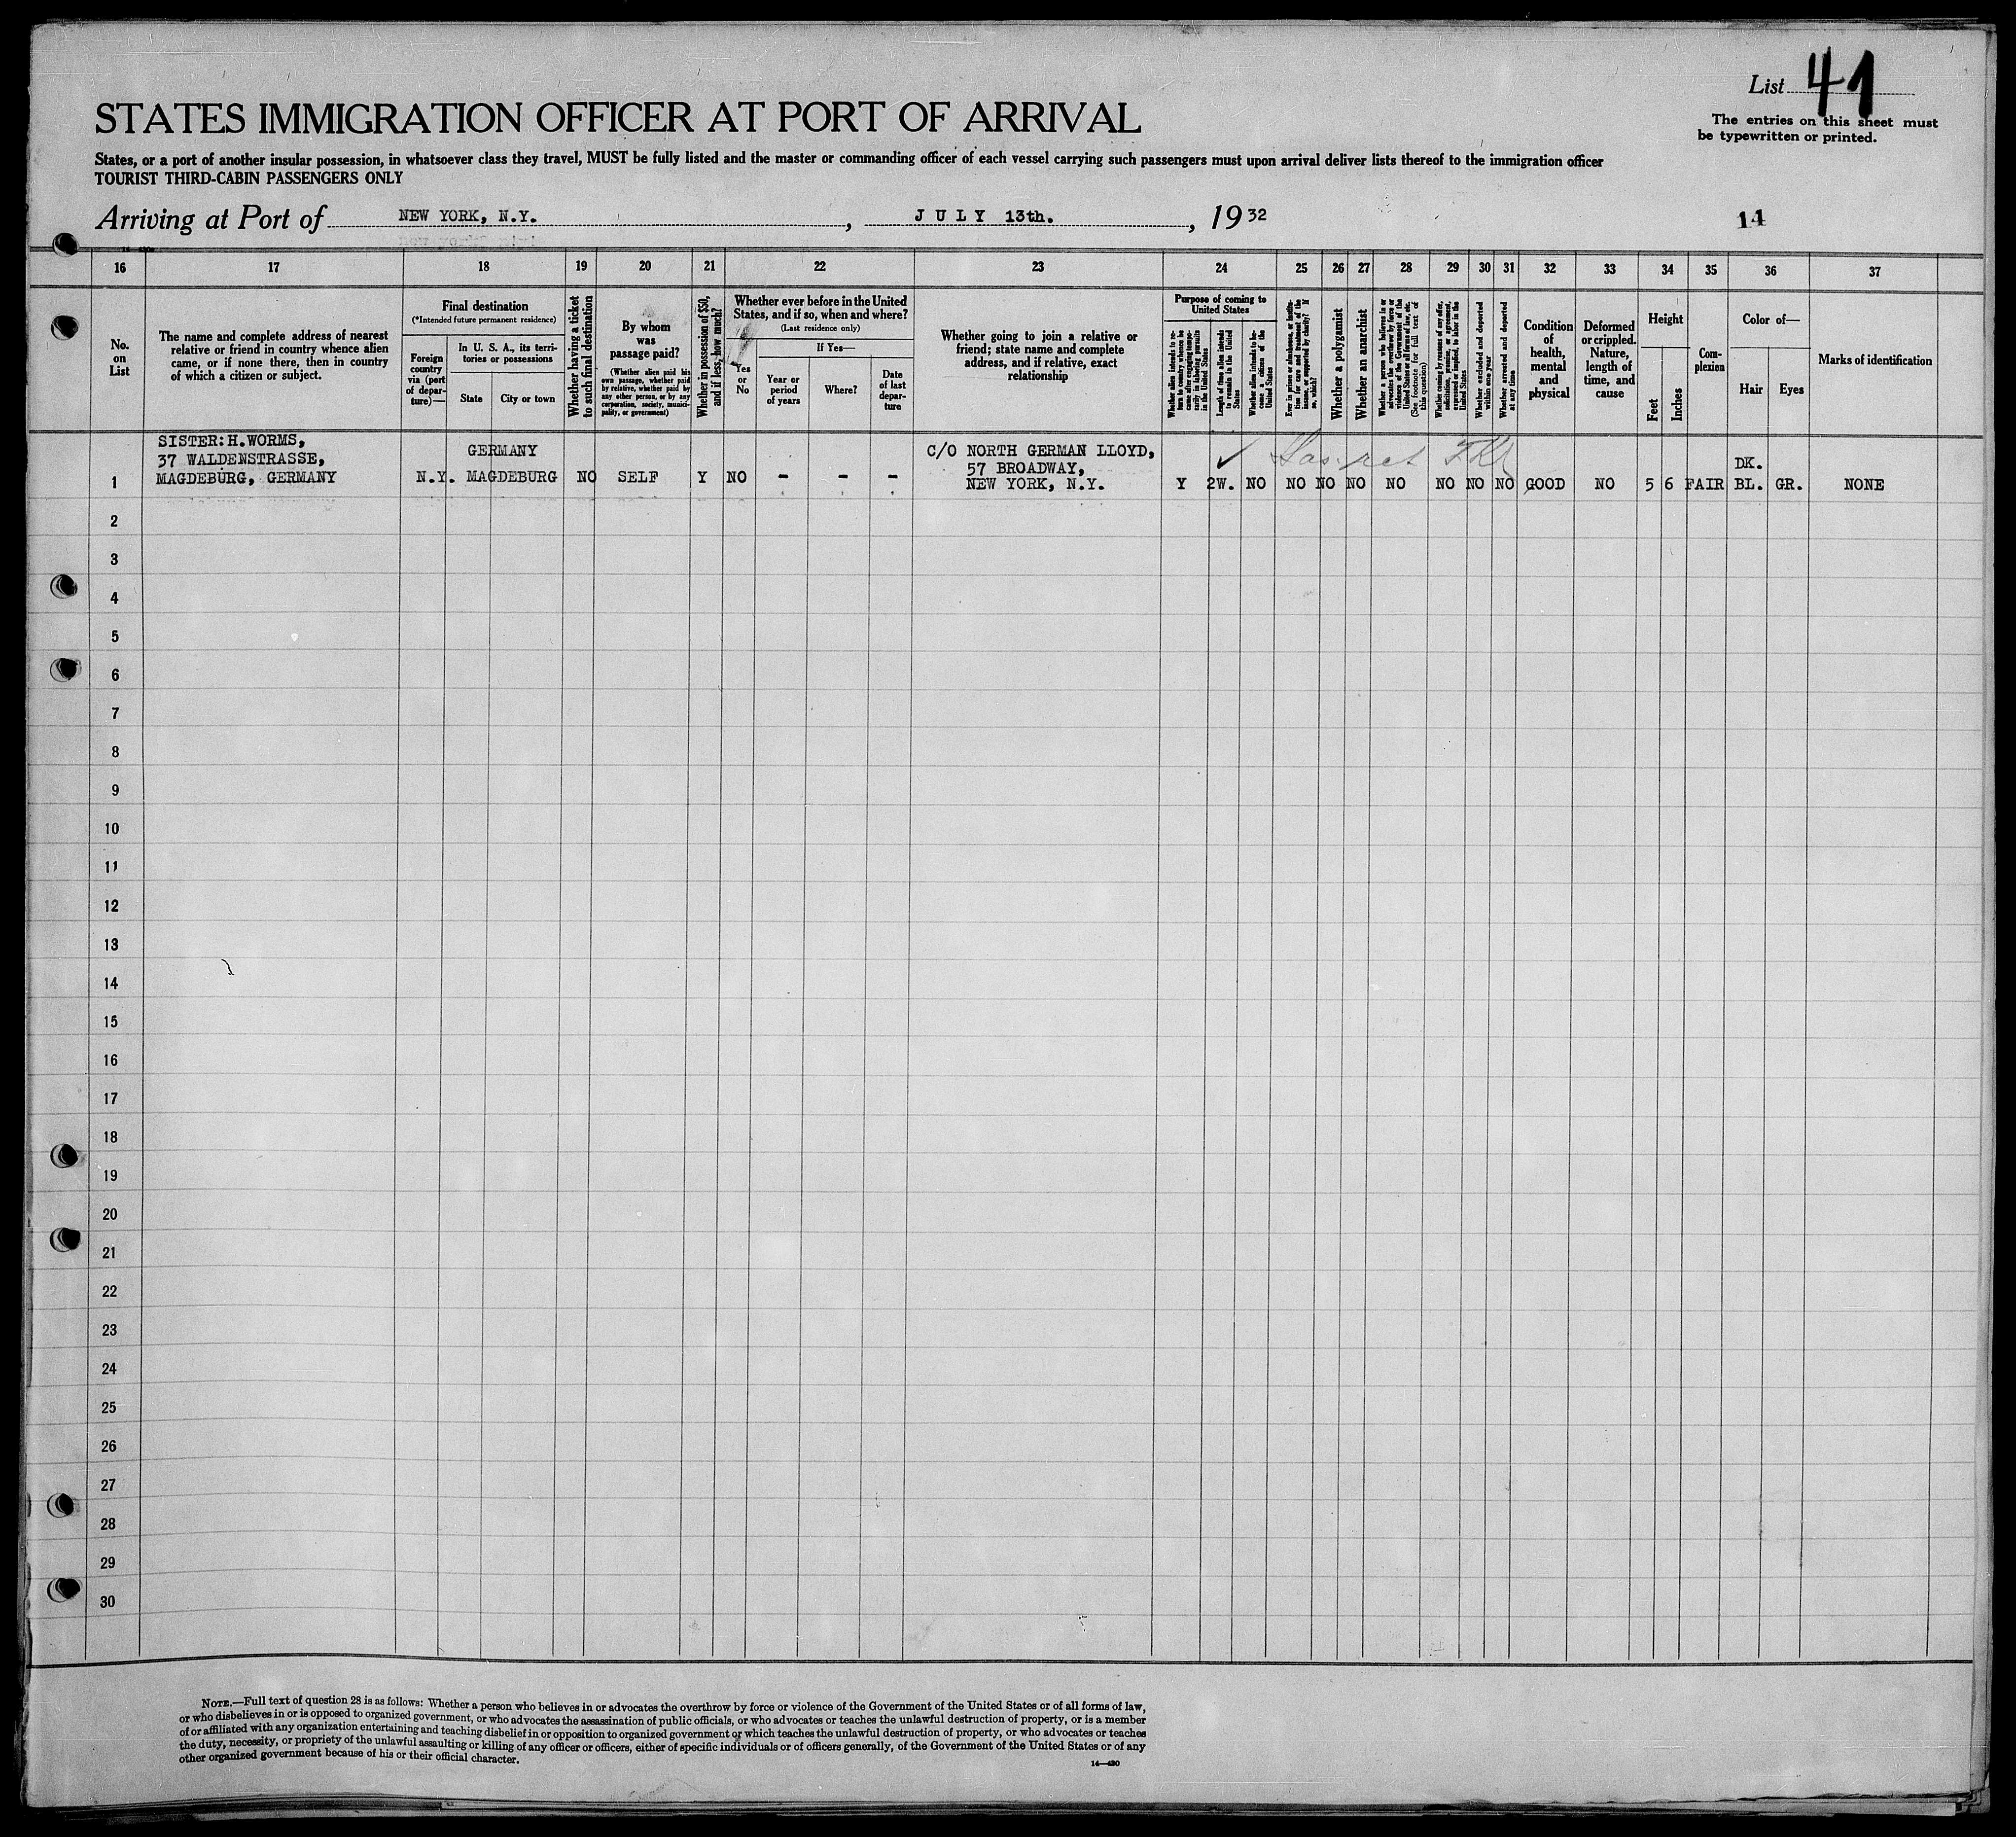 List 41
The entries on this sheet must
be typewritten or printed.
STATES IMMIGRATION OFFICER AT PORT OF ARRIVAL
States, or a port of another insular possession, in whatsoever class they travel, MUST be fully listed and the master or commanding officer of each vessel carrying such passengers must upon arrival deliver lists thereof to the immigration officer
TOURIST THIRD-CABIN PASSENGERS ONLY
Arriving at Port of NEW YORK, N.Y., JULY 13th., 1932
14
16 17 18 19 20 21 22 23 24 25 26 27 28 29 30 31 32 33 34 35 36 37
No.
on
List
The name and complete address of nearest
relative or friend in country whence alien
came, or if none there, then in country
of which a citizen or subject.
Final destination
(*Intended future permanent residence)
Foreign
country
via (port
of depar-
ture)—
In U. S. A., its terri-
tories or possessions
State
City or town
Whether having a ticket
to such final destination
By whom
was
passage paid?
(Whether alien paid his
own passage, whether paid
by relative, whether paid by
any other person, or by any
corporation, society, munici-
pality, or government)
Whether in possession of $50,
and if less, how much?
Whether ever before in the United
States, and if so, when and where?
(Last residence only)
Yes
or
No
If Yes—
Year or
period
of years
Where?
Date
of last
depar-
ture
Whether going to join a relative or
friend; state name and complete
address, and if relative, exact
relationship
Purpose of coming to
United States
Whether alien intends to re-
turn to country whence he
came after engaging tempo-
rarily in laboring pursuits
in the United States
Length of time alien intends
to remain in the United
States
Whether alien intends to be-
come a citizen of the
United States
Ever in prison or almshouse, or institu-
tion for care and treatment of the
insane, or supported by charity? If
so, which?
Whether a polygamist
Whether an anarchist
Whether a person who believes in or
advocates the overthrow by force or
violence of the Government of the
United States or all forms of law, etc.
(See footnote for full text of
this question)
Whether coming by reasons of any offer,
solicitation, promise, or agreement,
expressed or implied, to labor in the
United States
Whether excluded and deported
within one year
Whether arrested and deported
at any time
Condition
of
health,
mental
and
physical
Deformed
or crippled.
Nature,
length of
time, and
cause
Height
Feet
Inches
Com-
plexion
Color of—
Hair
Eyes
Marks of identification
SISTER: H. WORMS,
37 WALDENSTRASSE,
MAGDEBURG, GERMANY
GERMANY
1 N.Y. MAGDEBURG NO SELF Y NO - - -
C/O NORTH GERMAN LLOYD,
57 BROADWAY,
NEW YORK, N.Y.
DK.
Y 2W. NO NO NO NO NO NO NO NO GOOD NO 5 6 FAIR BL. GR. NONE
2
3
4
5
6
7
8
9
10
11
12
13
14
15
16
17
18
19
20
21
22
23
24
25
26
27
28
29
30
NOTE.—Full text of question 28 is as follows: Whether a person who believes in or advocates the overthrow by force or violence of the Government of the United States or of all forms of law,
or who disbelieves in or is opposed to organized government, or who advocates the assassination of public officials, or who advocates or teaches the unlawful destruction of property, or is a member
of or affiliated with any organization entertaining and teaching disbelief in or opposition to organized government or which teaches the unlawful destruction of property, or who advocates or teaches
the duty, necessity, or propriety of the unlawful assaulting or killing of any officer or officers, either of specific individuals or of officers generally, of the Government of the United States or of any
other organized government because of his or their official character.
14—430